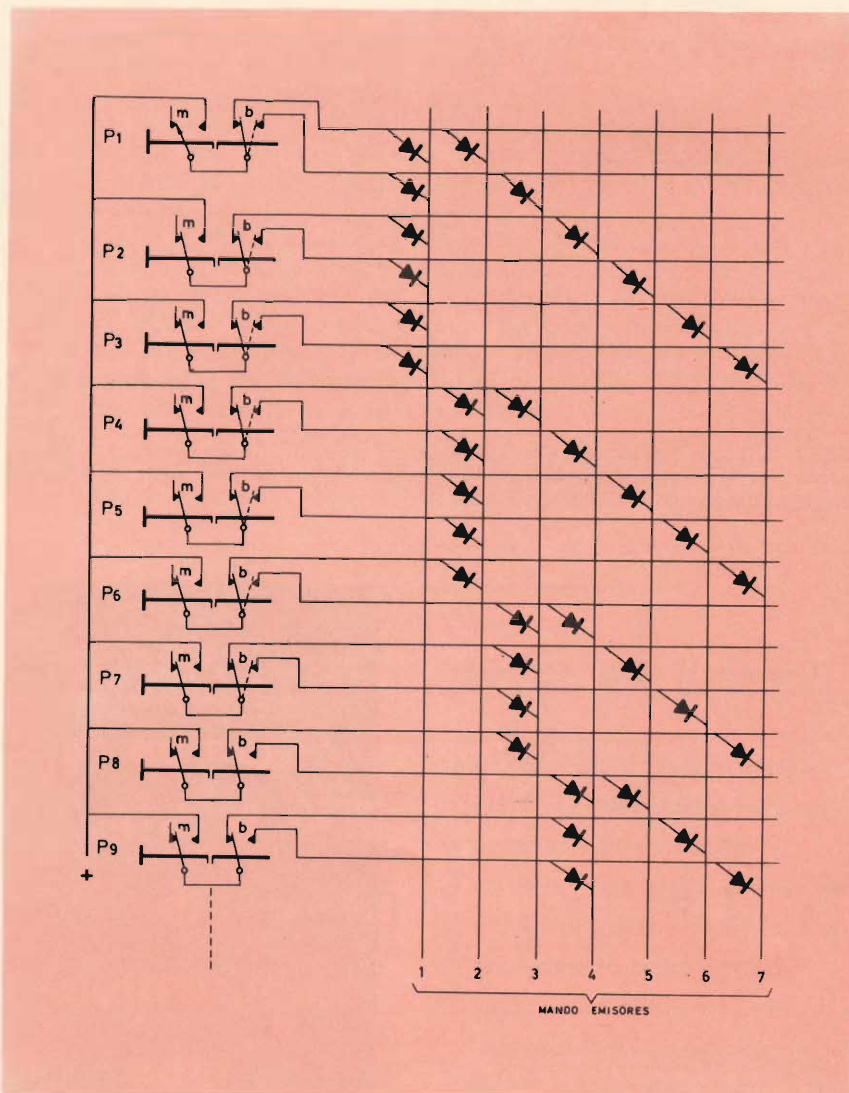 m b
P1
m b
P2
m b
P3
m b
P4
m b
P5
m b
P6
m b
P7
m b
P8
m b
P9
+
1 2 3 4 5 6 7
MANDO EMISORES